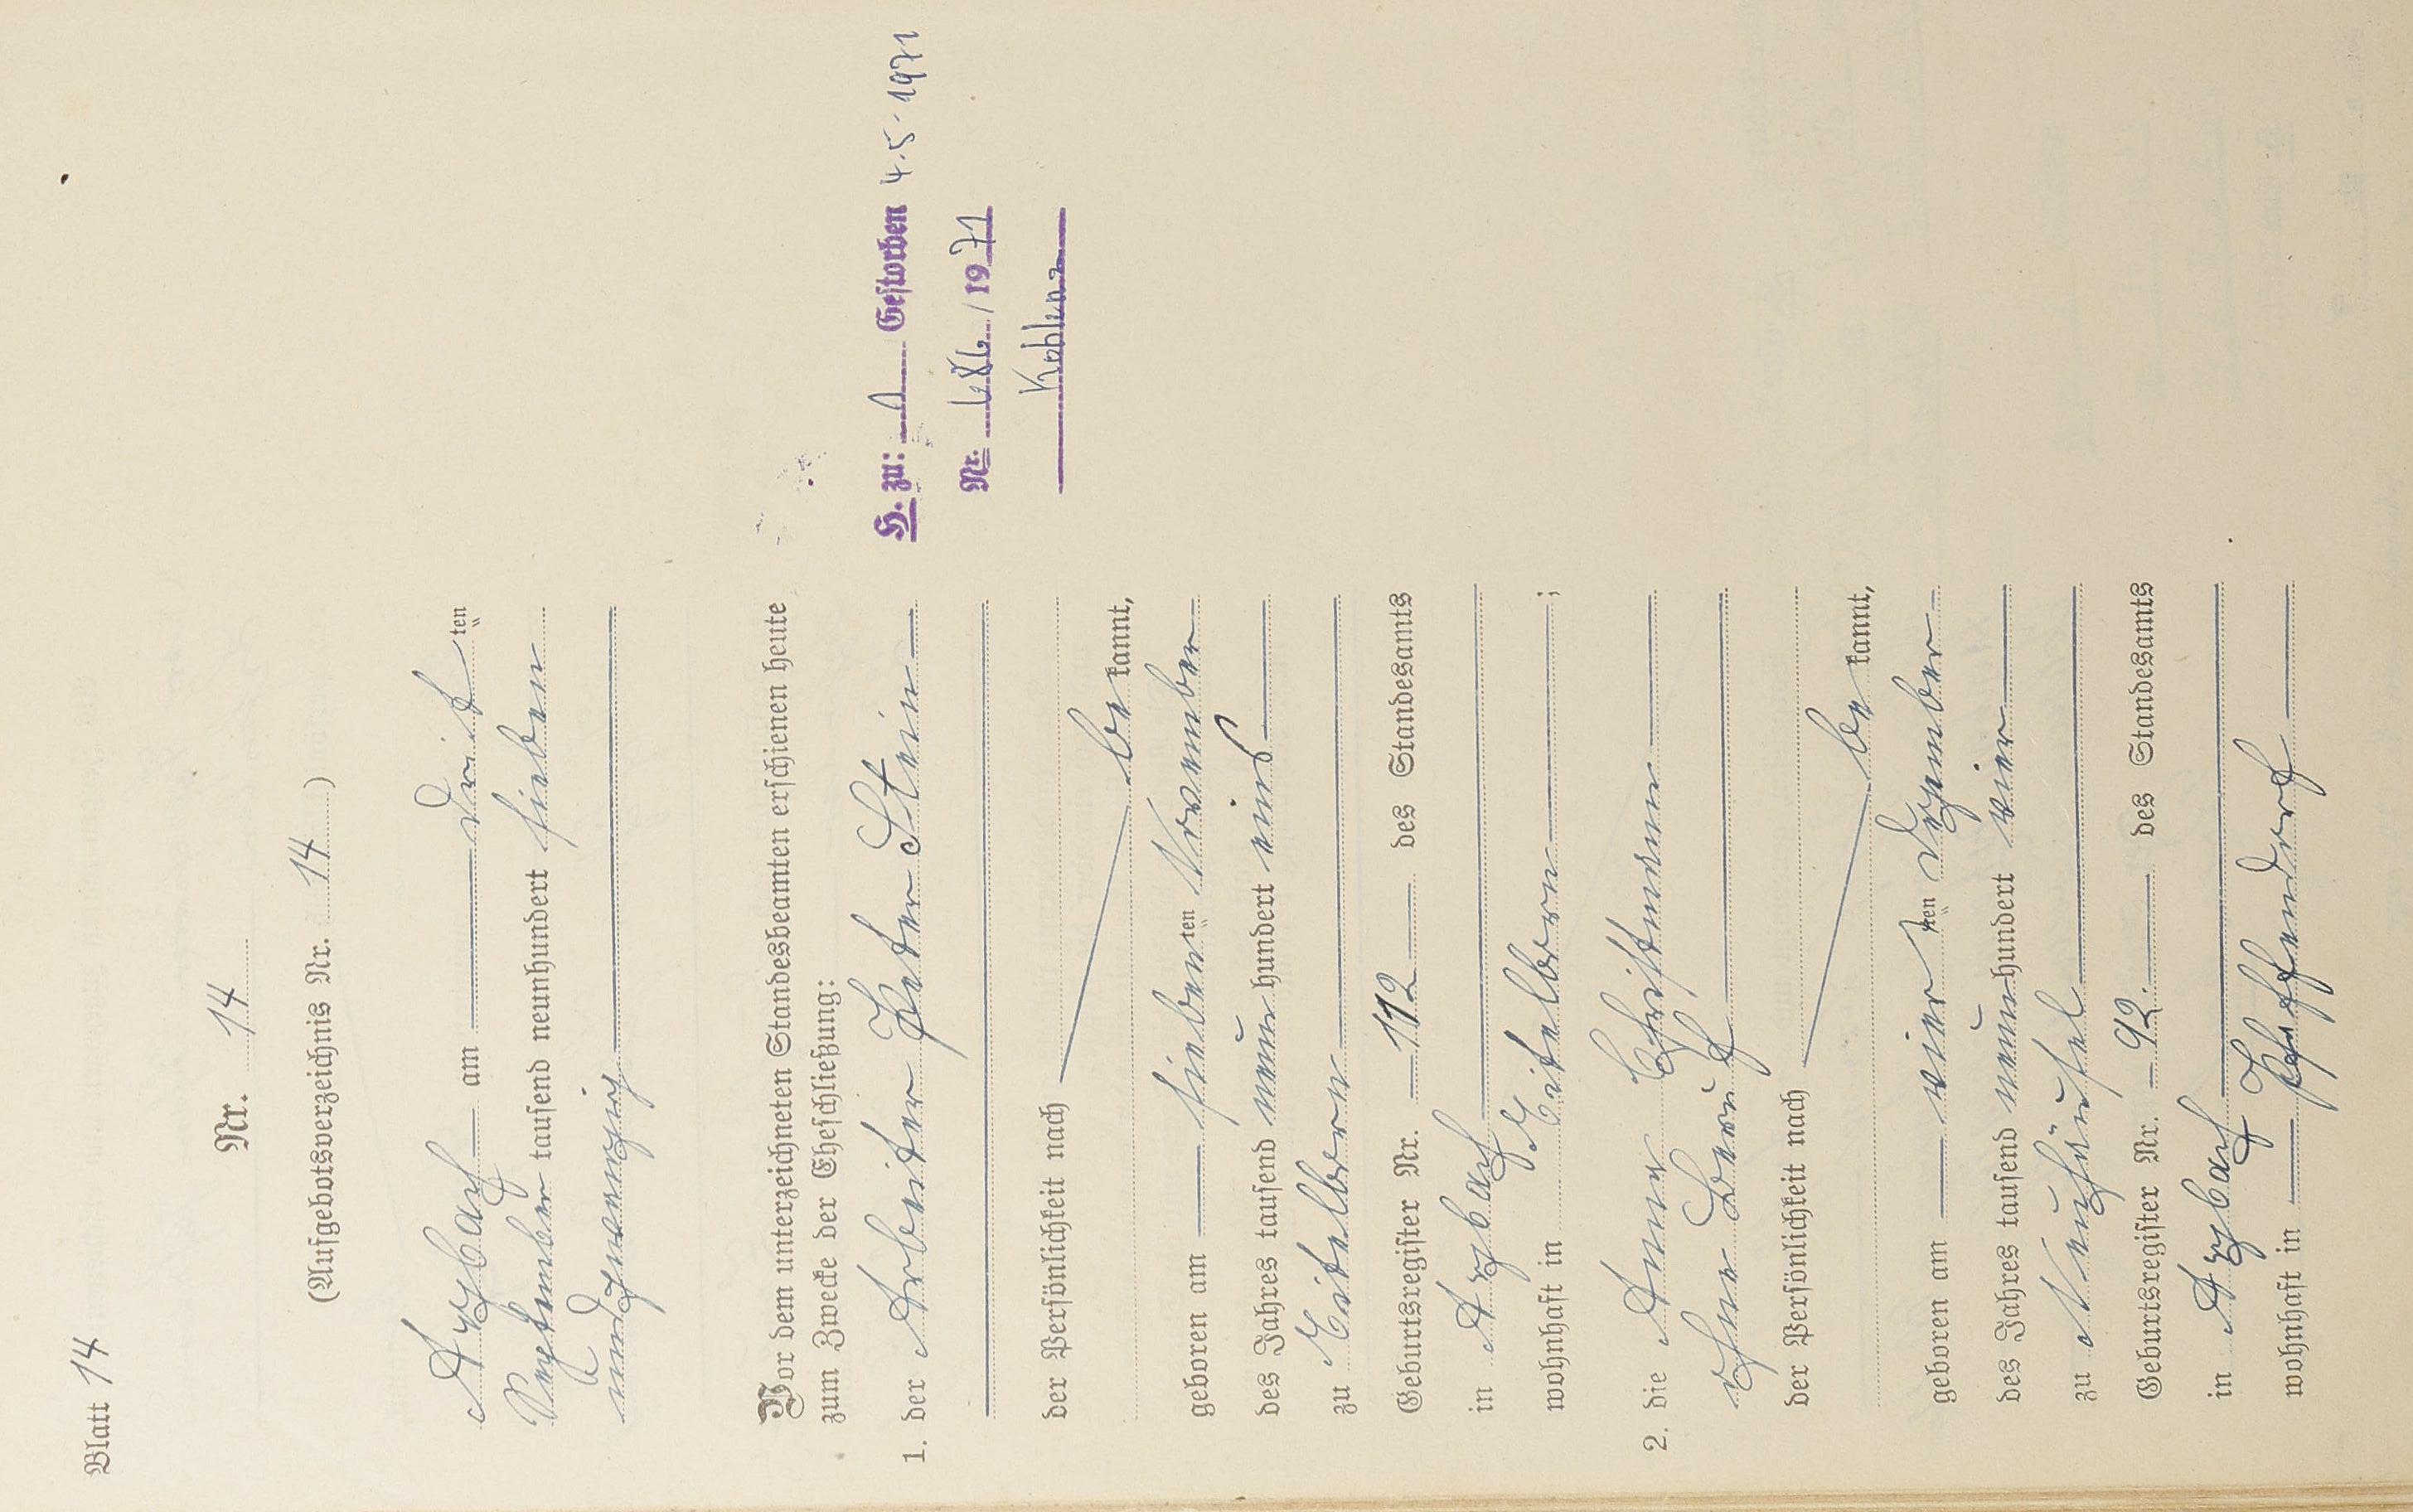 Blatt 14
Nr. 14
(Aufgebotsverzeichnis Nr. 14)
Arzbach am dritten
September tausend neunhundert sieben
und zwanzig
Vor dem unterzeichneten Standesbeamten erschienen heute
zum Zwecke der Eheschließung:
1. der Arbeiter Peter Stein
H. zu: 1 Gestorben 4.5.1971
Nr. /1971
Koblenz
der Persönlichkeit nach
bekannt,
geboren am siebenten November
des Jahres tausend neunhundert eins
zu Eitelborn
Geburtsregister Nr. 112 des Standesamts
in Arzbach
wohnhaft in Eitelborn;
2. die Anna Christmann
ohne Beruf
der Persönlichkeit nach
bekannt,
geboren am vierten Dezember
des Jahres tausend neunhundert vier
zu Neuhäusel
Geburtsregister Nr. 92. des Standesamts
in Arzbach
wohnhaft in Pfaffendorf